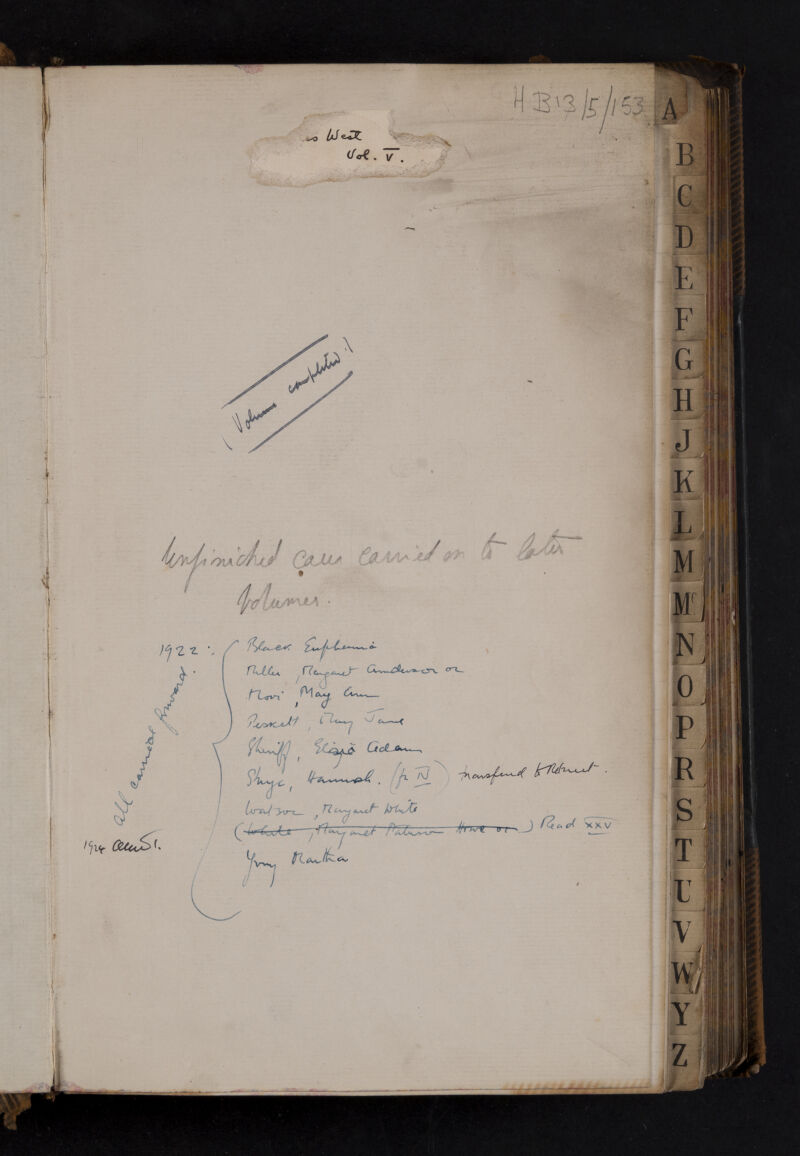 HB13/5/153
es West
Vol. V.
Volume completed
Unfinished cases carried on to later
Volumes.
1922:
Black Euphemia
Miller, Margaret Anderson or
Moni, May Ann
Peskett, Mary Jane
Sheriff, Eliza Adam
Skye, Hannah. (fr IV) transferred to
Watson, Margaret White
(White, Margaret Paterson Howe or) Read XXV
Martha
all carried forward.
1924
A
B
C
D
E
F
G
H
J
K
L
M
Mc
N
O
P
R
S
T
U
V
W
Y
Z